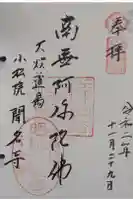 奉拝
令和二年
十一月二十九日
南無阿弥陀佛
大炊道場
小松院 聞名寺